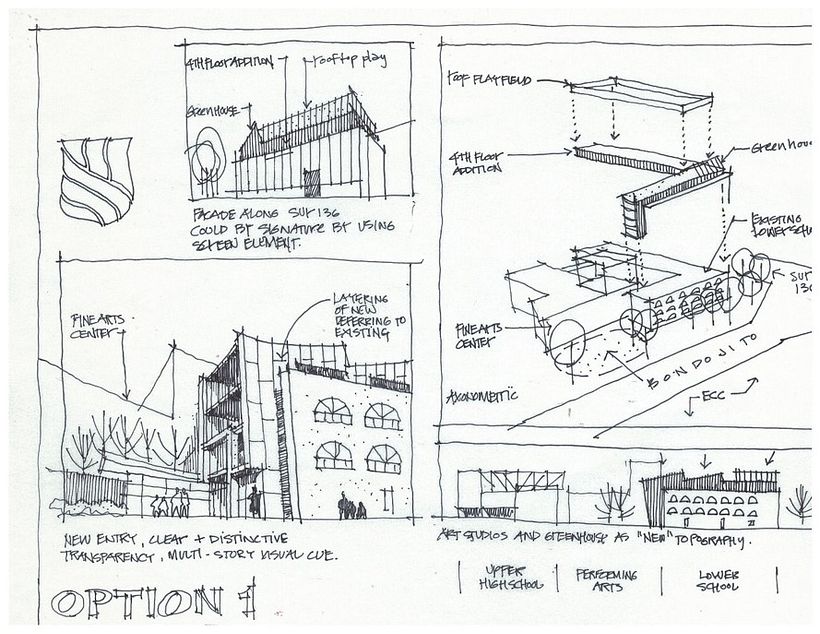 4TH FLOOR ADDITION
rooftop play
GREENHOUSE
FACADE ALONG SUR 136
COULD BY SIGNATURE BY USING
SCREEN ELEMENT.
FINE ARTS
CENTER
LAYERING
OF NEW
DEFERRING TO
EXISTING
NEW ENTRY, CLEAR + DISTINCTIVE
TRANSPARENCY, MULTI-STORY VISUAL CUE.
OPTION 1
ROOF PLAYFIELD
4TH FLOOR
ADDITION
Greenhou
EXISTING
LOWER SCH
SUR
136
FINE ARTS
CENTER
BONDOJITO
AXONOMETRIC
ECC
ART STUDIOS AND GREENHOUSE AS "NEW" TOPOGRAPHY.
UPPER
HIGH SCHOOL
PERFORMING
ARTS
LOWER
SCHOOL